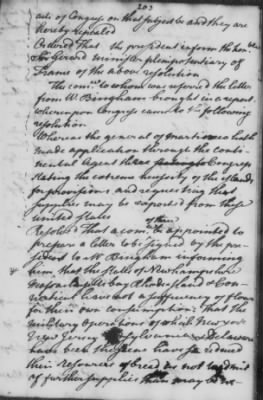 203
acts of Congress on that subject be and they are
hereby repealed
Ordered That the president inform the honble
Sr Gerard minister plenipotentiary of
France of the above resolution
The comee to whom was referred the letter
from Wm Bingham brought in a report,
whereupon Congress came to ye following
resolution
Whereas the general of Martineco hath
made application through the conti-
nental Agent there to Congress
stating the extreme necessity of the islands
for provisions and requesting that
supplies may be exported from these
united states
Resolved That a comee of three be appointed to
prepare a letter to be signed by the pre-
sident to Mr Bingham informing
him that the states of Newhampshire
Massachusetts bay Rhodeisland & Con-
necticut have not a sufficiency of flour
for their own consumption: That the
military operations of which New york
New Jersey Pensylvania & Delaware
have been the scene have so reduced
their resources of bread as not to admit
of further supplies than may be ne-